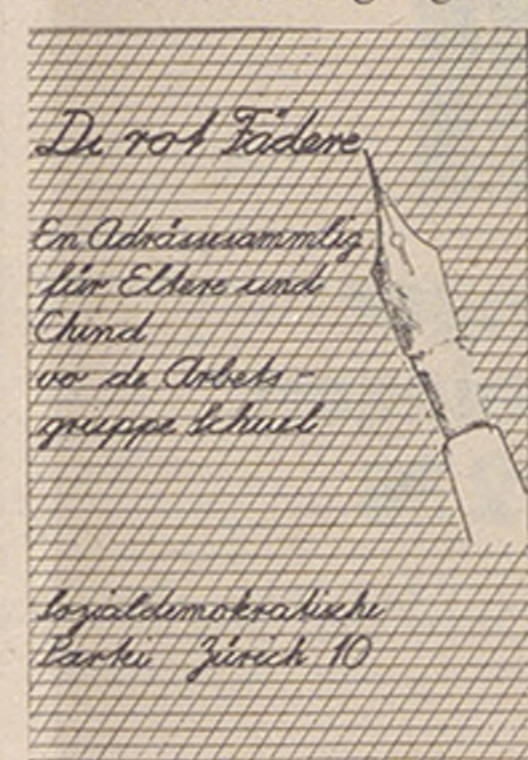 Di rot Fädere
En Adrässesammlig
für Eltere und
Chind
vo de Arbets-
gruppe Schuel
Sozialdemokratische
Partei Zürich 10